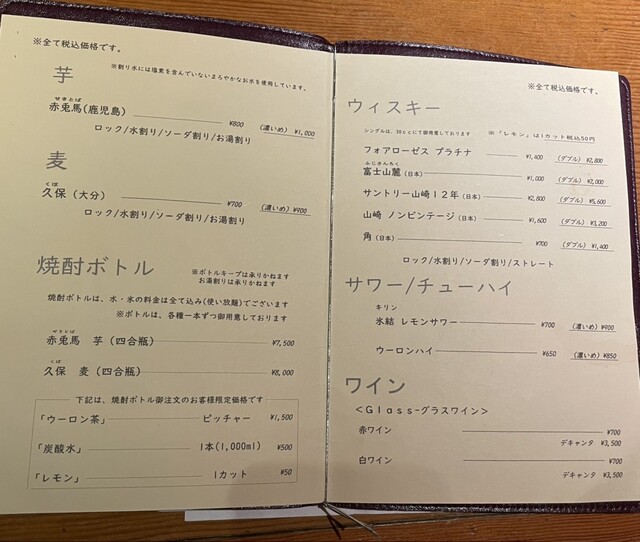 ※全て税込価格です。
芋
※割り水には塩素を含んでいないまろやかなお水を使用しています。
せきとば
赤兎馬(鹿児島) ¥800 (濃いめ) ¥1,000
ロック/水割り/ソーダ割り/お湯割り
麦
くぼ
久保 (大分) ¥700 (濃いめ) ¥900
ロック/水割り/ソーダ割り/お湯割り
焼酎ボトル
※ボトルキープは承りかねます
お湯割りは承りかねます
焼酎ボトルは、水・氷の料金は全て込み(使い放題)でございます
※ボトルは、各種一本ずつ御用意しております
せきとば
赤兎馬 芋 (四合瓶) ¥7,500
くぼ
久保 麦 (四合瓶) ¥8,000
下記は、焼酎ボトル御注文のお客様限定価格です
「ウーロン茶」 ピッチャー ¥1,500
「炭酸水」 1本(1,000ml) ¥500
「レモン」 1カット ¥50
※全て税込価格です。
ウィスキー
シングルは、30ccにて御用意しております ※「レモン」は1カット税込50円
フォアローゼス プラチナ ¥1,400 (ダブル) ¥2,800
ふじさんろく
富士山麓 (日本) ¥1,000 (ダブル) ¥2,000
サントリー山崎12年 (日本) ¥2,800 (ダブル) ¥5,600
山崎 ノンビンテージ (日本) ¥1,600 (ダブル) ¥3,200
角 (日本) ¥700 (ダブル) ¥1,400
ロック/水割り/ソーダ割り/ストレート
サワー/チューハイ
キリン
氷結 レモンサワー ¥700 (濃いめ) ¥900
ウーロンハイ ¥650 (濃いめ) ¥850
ワイン
<Glass-グラスワイン>
赤ワイン ¥700
デキャンタ ¥3,500
白ワイン ¥700
デキャンタ ¥3,500